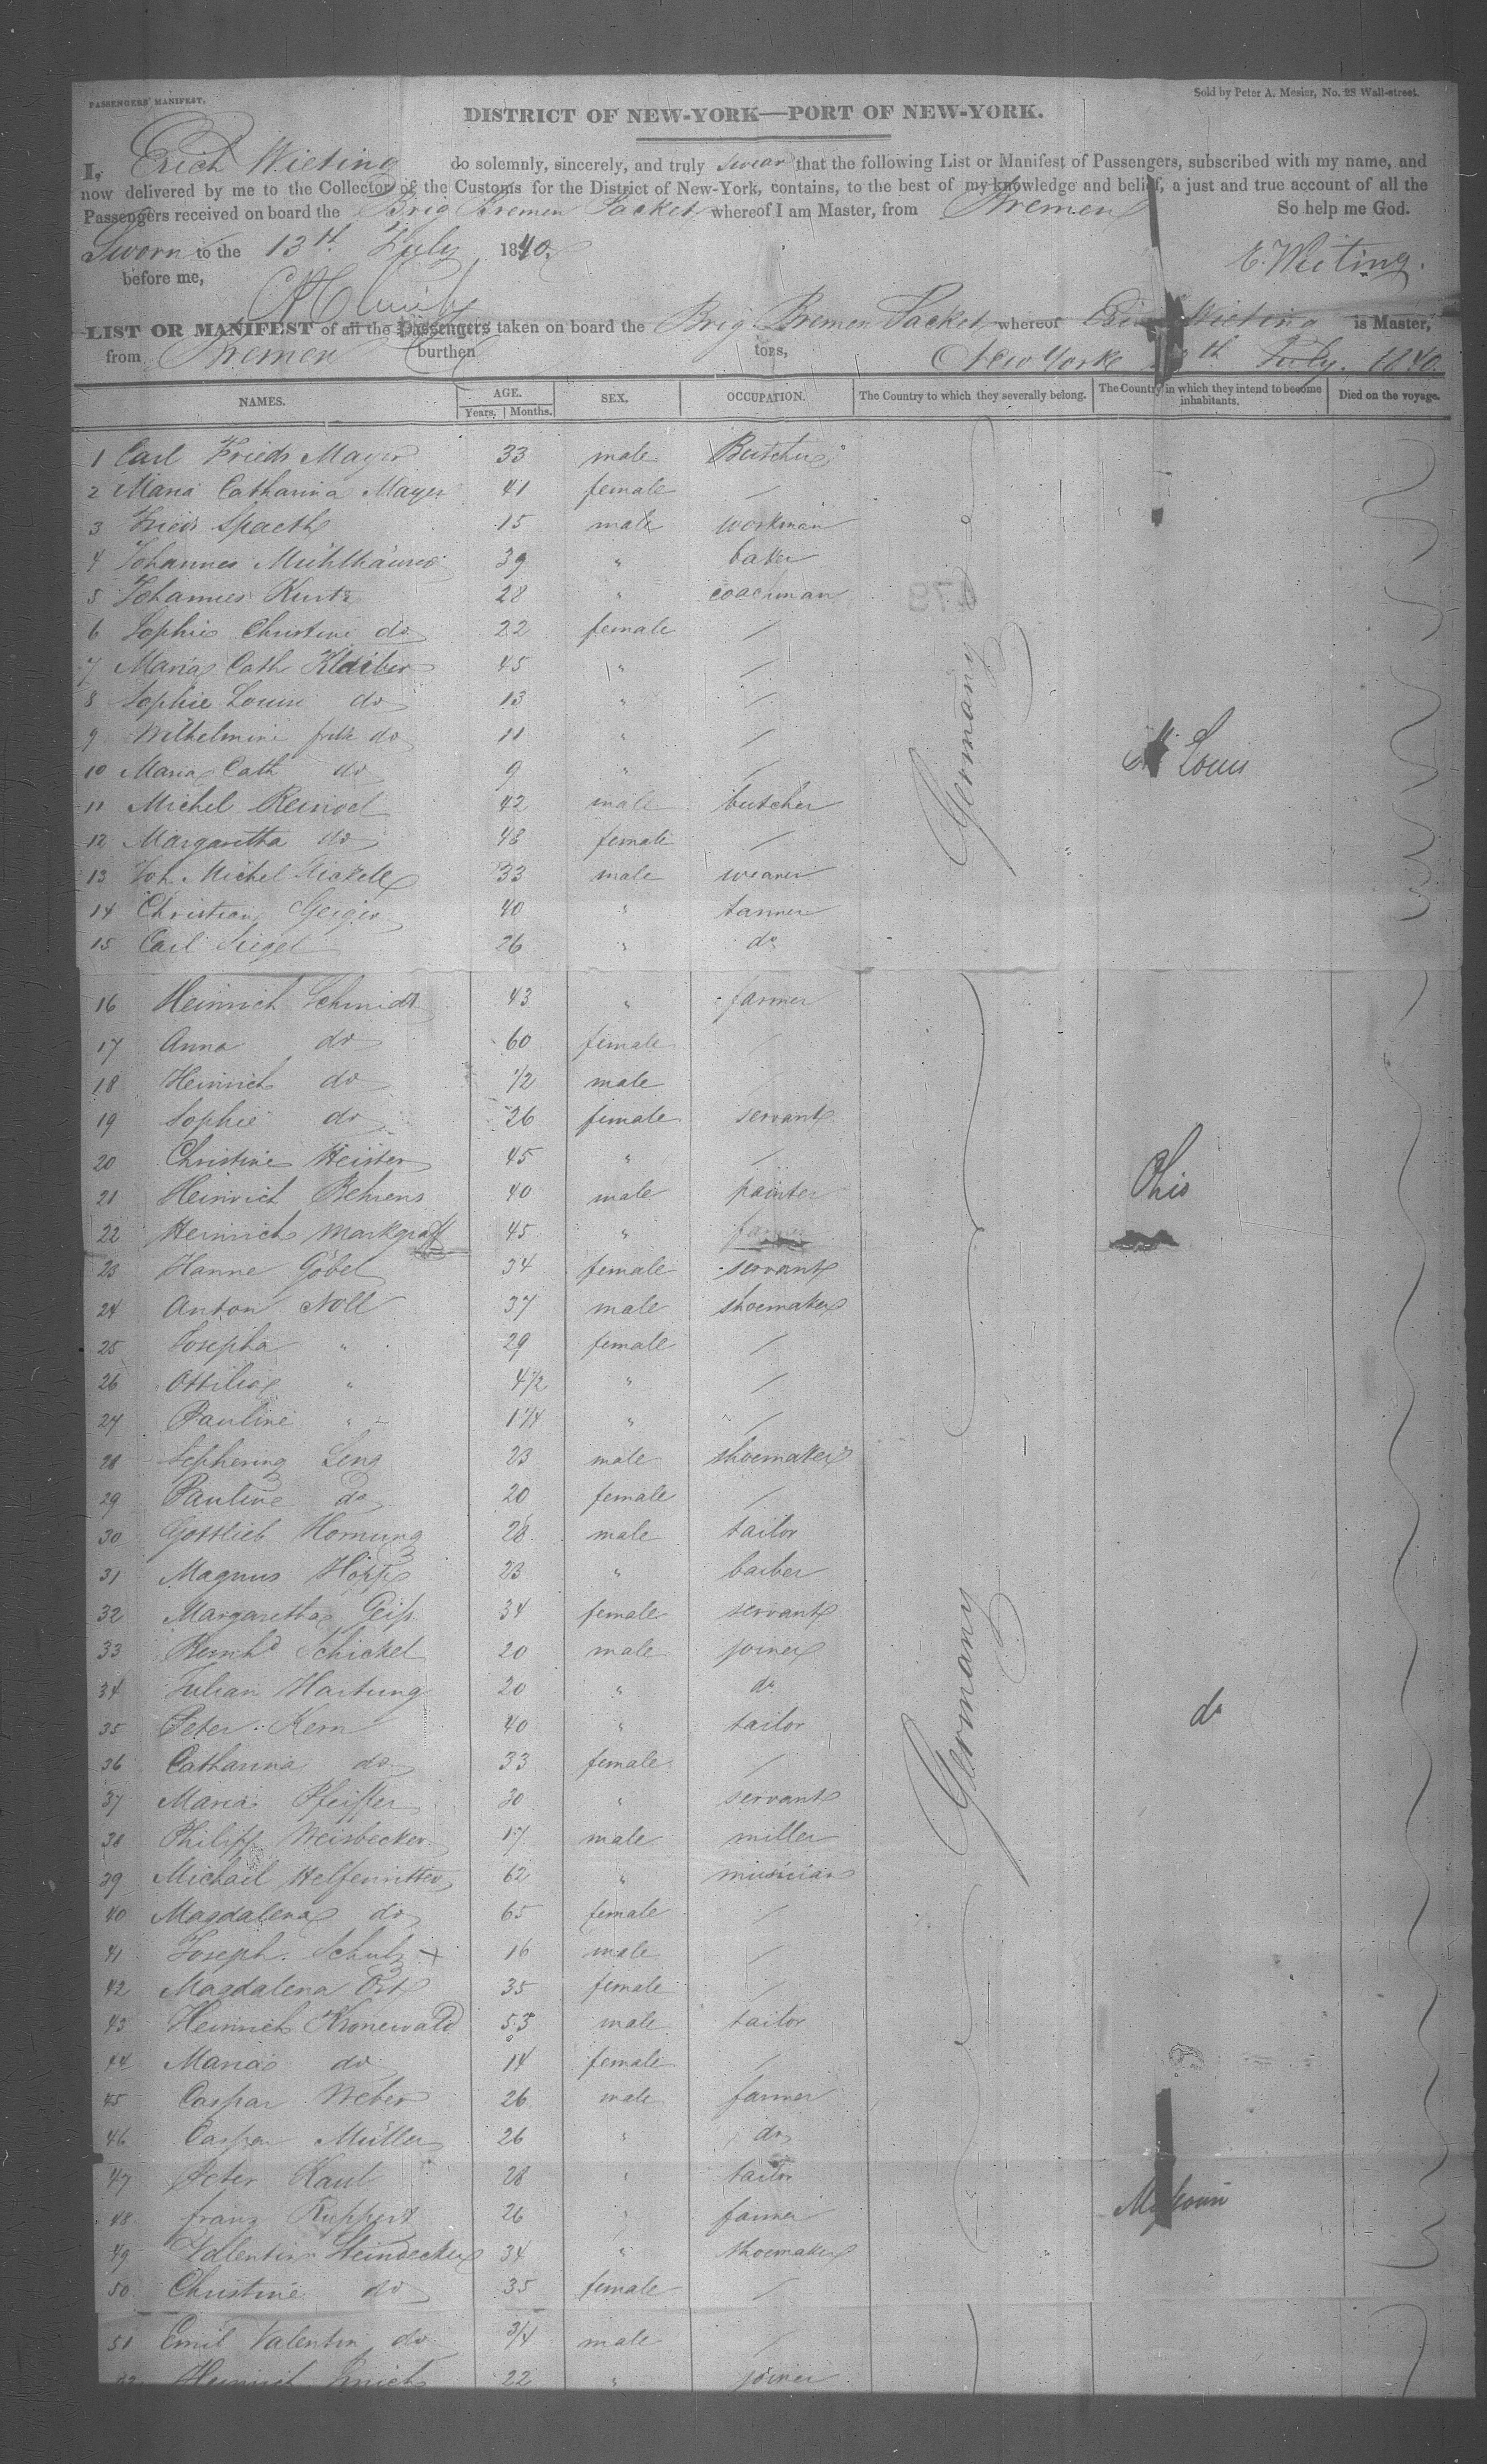 PASSENGERS' MANIFEST.
Sold by Peter A. Mesier, No. 28 Wall-street.
DISTRICT OF NEW-YORK—PORT OF NEW-YORK.
I, Erich Wieting do solemnly, sincerely, and truly swear that the following List or Manifest of Passengers, subscribed with my name, and
now delivered by me to the Collector of the Customs for the District of New-York, contains, to the best of my knowledge and belief, a just and true account of all the
Passengers received on board the Brig Bremen Packet whereof I am Master, from Bremen So help me God.
Sworn to the 13th July 1840.
before me, E. Wieting.
LIST OR MANIFEST of all the Passengers taken on board the Brig Bremen Packet whereof Erich Wieting is Master,
from Bremen burthen tons, New York 13th July. 1840.
NAMES. AGE. Years. Months. SEX. OCCUPATION. The Country to which they severally belong. The Country in which they intend to become inhabitants. Died on the voyage.
1 Carl Friedr Mayer 33 male Butcher
2 Maria Catharina Mayer 41 female /
3 Friedr Spaeth 15 male workman
4 Johannes Mühlhäuser 39 " baker
5 Johannes Kurtz 28 " coachman
6 Sophie Christine do 22 female /
7 Maria Cath Klaiber 45 " /
8 Sophie Louise do 13 " /
9 Wilhelmine do 11 " /
10 Maria Cath do 9 " /
Germany
St Louis
11 Michel Reinoel 42 male butcher
12 Margaretha do 48 female /
13 Joh Michel 33 male weaver
14 Christian Geiger 40 " tanner
15 Carl Siegel 26 " do
16 Heinrich Schmidt 43 " farmer
17 Anna do 60 female /
18 Heinrich do 1/2 male /
19 Sophie do 26 female servant
20 Christine Heister 45 " /
21 Heinrich Behrens 40 male painter Ohio
22 Heinrich Markgraff 45 " farmer
23 Hanne Göbel 34 female servant
24 Anton Noll 37 male shoemaker
25 Josepha " 29 female /
26 Ottilia " 4 1/2 " /
27 Pauline " 1 1/4 " /
28 Leng 23 male shoemaker
29 Pauline do 20 female /
30 Gottlieb Hornung 28 male tailor
31 Magnus Höpp 23 " barber
32 Margaretha Geiß 34 female servant
33 Bernhd Schickel 20 male joiner
34 Julian Hartung 20 " do
Germany
do
35 Peter Kern 40 " tailor
36 Catharina do 33 female /
37 Maria Pfeiffer 30 " servant
38 Philipp Weisbecker 17 male miller
39 Michael Helfenritter 62 " musician
40 Magdalena do 65 female /
41 Joseph Schulz + 16 male /
42 Magdalena Ort 35 female /
43 Heinrich Kronewald 53 male tailor
44 Maria do 14 female /
45 Caspar Weber 26 male farmer
46 Caspar Müller 26 " do
47 Peter Kaul 28 " tailor
48 Franz Ruppert 26 " farmer Missouri
49 Valentin Steindecker 34 " shoemaker
50 Christine do 35 female /
51 Emil Valentin do 3/4 male /
52 Heinrich 22 " joiner